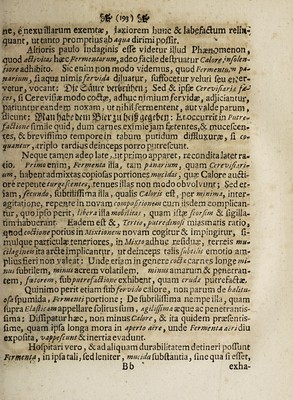 (193)
ne, é nexu illarum exemtæ, laxiorem hunc & labefactum relin-
quant, ut tanto promptius ab aqua dirimi possit.
Altioris paulo indaginis esse videtur illud Phænomenon,
quod activitas hæc Fermentorum, adeo facile destruatur Calore insolen-
tiore adhibito. Sic enim non modo videmus, quod Fermentum pa-
narium, si aqua nimis fervida diluatur, suffocetur veluri seu ener-
vetur, vocant: Die Säure verbrühen; Sed & ipsæ Cerevisiariæ fæ-
ces, si Cerevisiæ modo coctæ, adhuc nimium fervidæ, adjiciantur,
patiuntur eandem noxam, ut nihil fermentent, aut valde parum,
aiunt; Man habe dem Bier zu heiß gegeben: Et occurrit in Putre-
factione simile quid, dum carnes eximie jam fætentes, & mucescen-
tes, & brevissimo tempore in tabum putridum diffluxuræ, si co-
quantur, triplo tardius deinceps porro putrescunt.
Neque tamen adeo late, ut primo apparet, recondita latet ra-
tio. Primo enim, Fermenta illa, tam panarium, quam Cerevisiario-
rum, habent admixtas copiosas portiones mucidas, quæ Calore aucti-
ore repente turgescentes, tenues illas non modo obvolvunt; Sed et-
iam, secundo, subtilissima illa, qualis Caloris est, per minima, inter-
agitatione, repente in vanam compositionem cum iisdem complican-
tur, quo ipso perit, libera illa mobilitas, quam istæ seorsim & sigilla-
tim habuerant. Eadem est &, Tertio, putredinosi miasmatis ratio,
quod coctione potius in Mixtionem novam cogitur & impingitur, si-
mulque particulæ teneriores, in Mixto adhuc residuæ, terreis mu-
cilaginosis arcte implicantur, ut deinceps talis subtilis emotio am-
plius fieri non valeat: Unde etiam in genere coctæ carnes longe mi-
nus subtilem, minus acrem volatilem, minus amarum & penetran-
tem, fætorem, sub putrefactione exhibent, quam crudæ putrefactæ.
Quinimo perit etiam sub fervido calore, non parum de halitu-
osa spumida, Fermenti portione; De subtilissima nempe illa, quam
supra Elasticam appellare soliti sumus, agilissima æque ac penetrantis-
sima: Dissipatur hæc, non minus Calore, & ita quidem præsentis-
sime, quam ipsa longa mora in aperto aëre, unde Fermenta aëri diu
exposita, vappescunt & inertia evadunt.
Hospitari vero, & ad aliquam durabilitatem detineri possunt
Fermenta, in ipsa tali, sed leniter, mucida substantia, sine qua si esset,
Bb exha-